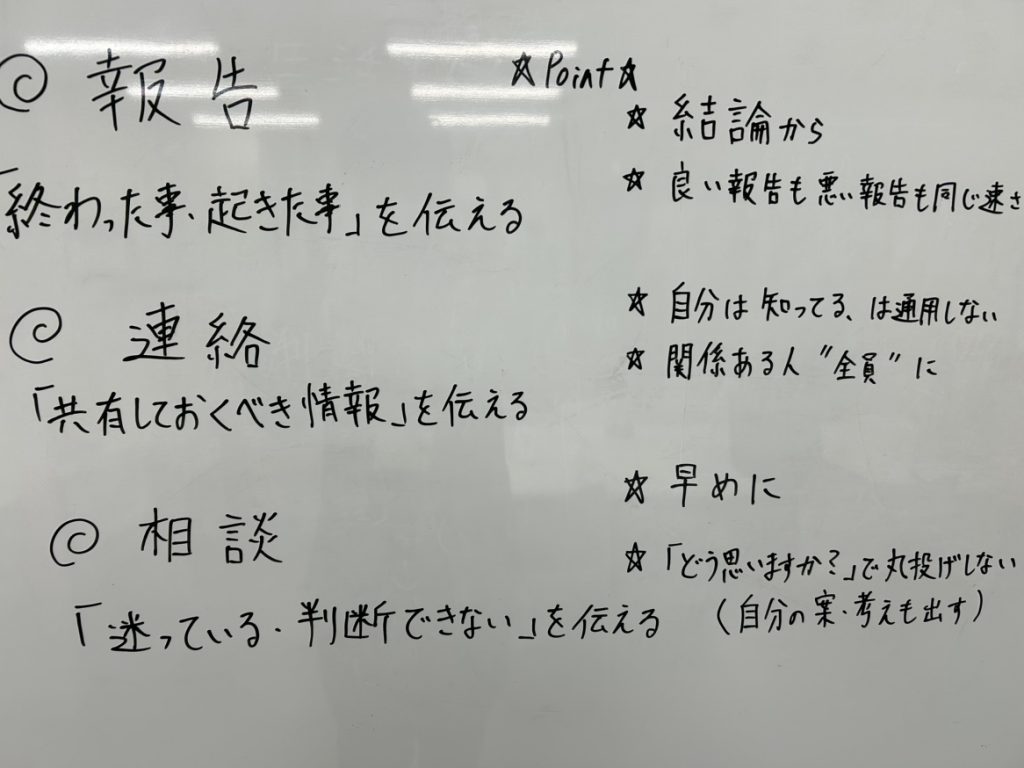 報告
「終わった事、起きた事」を伝える
☆Point☆
☆ 結論から
☆ 良い報告も悪い報告も同じ速さ
連絡
「共有しておくべき情報」を伝える
☆ 自分は知ってる、は通用しない
☆ 関係ある人〃全員〃に
相談
「迷っている・判断できない」を伝える
☆ 早めに
☆ 「どう思いますか?」で丸投げしない
(自分の案・考えも出す)